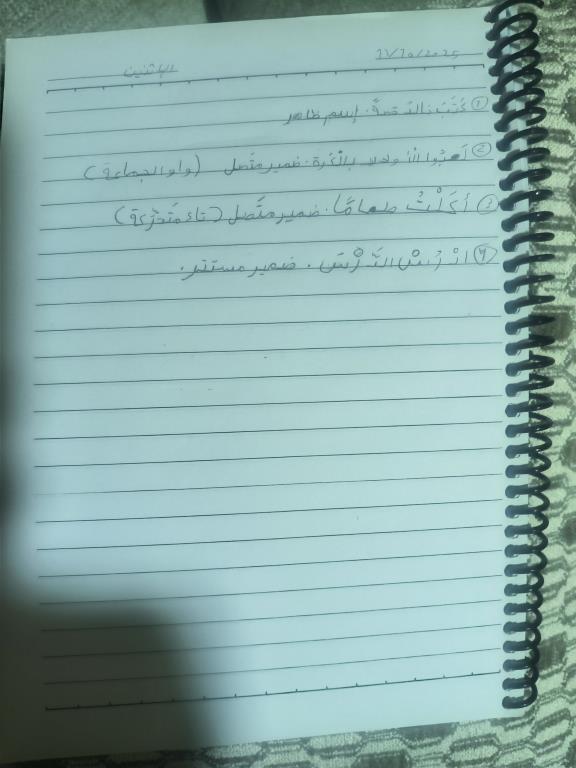 الإثنين
① كَتَبَ خالد قصةً. إسم ظاهر
② ألعبُوا الأولاد بالكُرة. ضمير متَّصل (واو الجماعة)
③ أكَلْتُ طعامًا. ضمير متَّصل (تاء متَحَرِّكة)
④ ادْرُسْ الدَّرْسَ. ضمير مستتر.